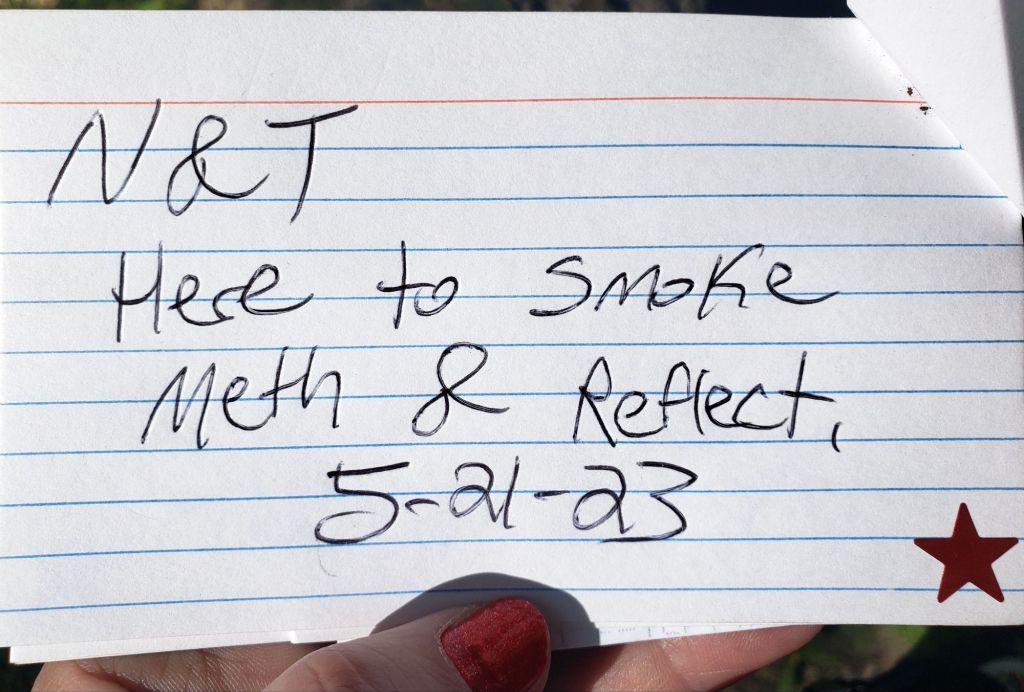 N & T
Here to Smoke
Meth & Reflect,
5-21-23